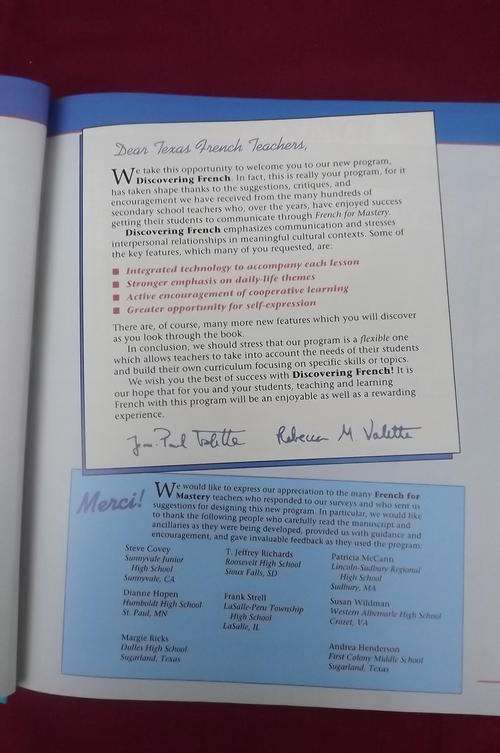 Dear Texas French Teachers,
We take this opportunity to welcome you to our new program,
Discovering French. In fact, this is really your program, for it
has taken shape thanks to the suggestions, critiques, and
encouragement we have received from the many hundreds of
secondary school teachers who, over the years, have enjoyed success
getting their students to communicate through French for Mastery.
Discovering French emphasizes communication and stresses
interpersonal relationships in meaningful cultural contexts. Some of
the key features, which many of you requested, are:
■ Integrated technology to accompany each lesson
■ Stronger emphasis on daily-life themes
■ Active encouragement of cooperative learning
■ Greater opportunity for self-expression
There are, of course, many more new features which you will discover
as you look through the book.
In conclusion, we should stress that our program is a flexible one
which allows teachers to take into account the needs of their students
and build their own curriculum focusing on specific skills or topics.
We wish you the best of success with Discovering French! It is
our hope that for you and your students, teaching and learning
French with this program will be an enjoyable as well as a rewarding
experience.
Jean-Paul Valette Rebecca M. Valette
Merci!
We would like to express our appreciation to the many French for
Mastery teachers who responded to our surveys and who sent us
suggestions for designing this new program. In particular, we would like
to thank the following people who carefully read the manuscript and
ancillaries as they were being developed, provided us with guidance and
encouragement, and gave invaluable feedback as they used the program.
Steve Covey
Sunnyvale Junior
High School
Sunnyvale, CA
Dianne Hopen
Humboldt High School
St. Paul, MN
Margie Ricks
Dulles High School
Sugarland, Texas
T. Jeffrey Richards
Roosevelt High School
Sioux Falls, SD
Frank Strell
LaSalle-Peru Township
High School
LaSalle, IL
Patricia McCann
Lincoln-Sudbury Regional
High School
Sudbury, MA
Susan Wildman
Western Albemarle High School
Crozet, VA
Andrea Henderson
First Colony Middle School
Sugarland, Texas